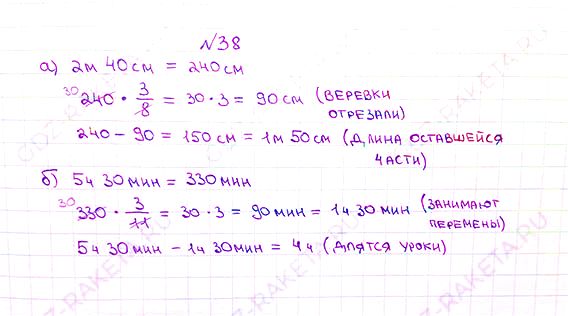 №38
а) 2м 40см = 240см
30 240 · 3/8 = 30·3 = 90см (ВЕРЕВКИ ОТРЕЗАЛИ)
240 - 90 = 150см = 1м 50см (ДЛИНА ОСТАВШЕЙСЯ ЧАСТИ)
б) 5ч 30мин = 330мин
30 330 · 3/11 = 30·3 = 90мин = 1ч 30мин (ЗАНИМАЮТ ПЕРЕМЕНЫ)
5ч 30мин - 1ч 30мин = 4ч (ДЛЯТСЯ УРОКИ)
GDZ-RAKETA.RU